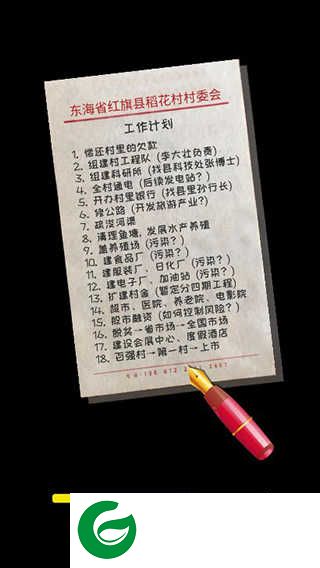 东海省红旗县稻花村村委会
工作计划
1. 偿还村里的欠款
2. 组建村工程队（李大壮负责）
3. 组建科研所（找县科技处张博士）
4. 全村通电（后续发电站？）
5. 开办村里银行（找县里孙行长）
6. 修公路（开发旅游产业?）
7. 疏浚河渠
8. 清理鱼塘，发展水产养殖
9. 盖养殖场（污染？）
10. 建食品厂（污染？）
11. 建服装厂、日化厂（污染？）
12. 建电子厂、加油站（污染？）
13. 扩建村金（暂定分四期工程）
14. 超市、医院、养老院、电影院
15. 股市融资（如何控制风险？）
16. 脱奖→省市场→全国市场
17. 建设会展中心、度假酒店
18. 百强村→第一村→上市